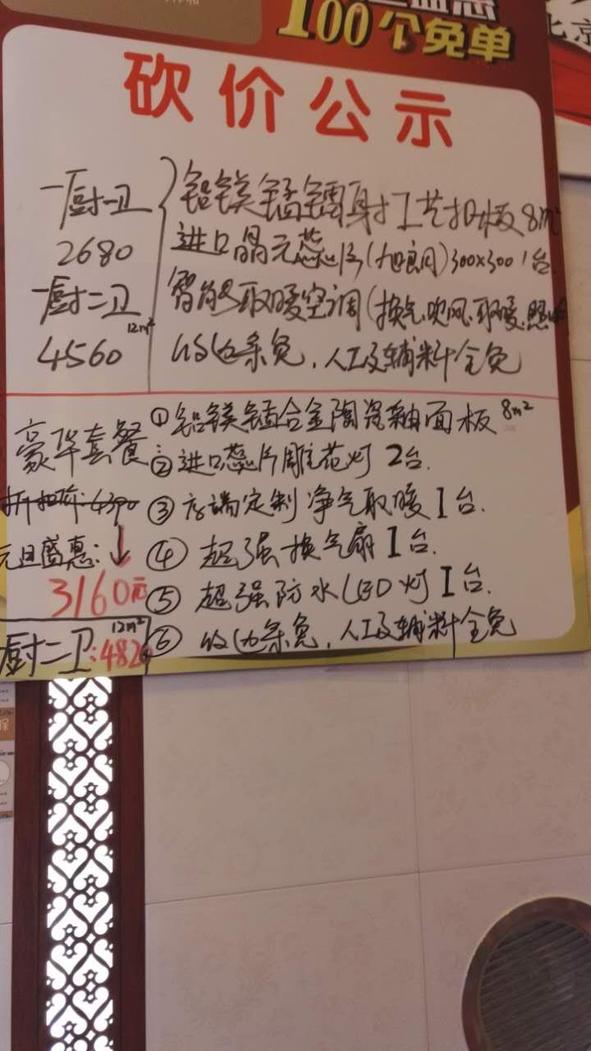 100个免单
北京
砍价公示
一厨一卫
2680
一厨二卫
12m²
4560
铝镁锰镭射工艺扣板8m²
进口晶元蕊片(旭良月)300x300 1台
智能取暖空调(换气.吹风.取暖.照
收边条免,人工及辅料全免
豪华套餐
折扣价:4390
元旦盛惠:↓
3160元
厨二卫:482
12m²
①铝镁锰合金陶瓷釉面板 8m²
②进口蕊片雕花灯 2台.
③高端定制净气取暖1台.
④超强换气扇1台.
⑤超强防水LED灯1台.
⑥收边条免,人工及辅料全免